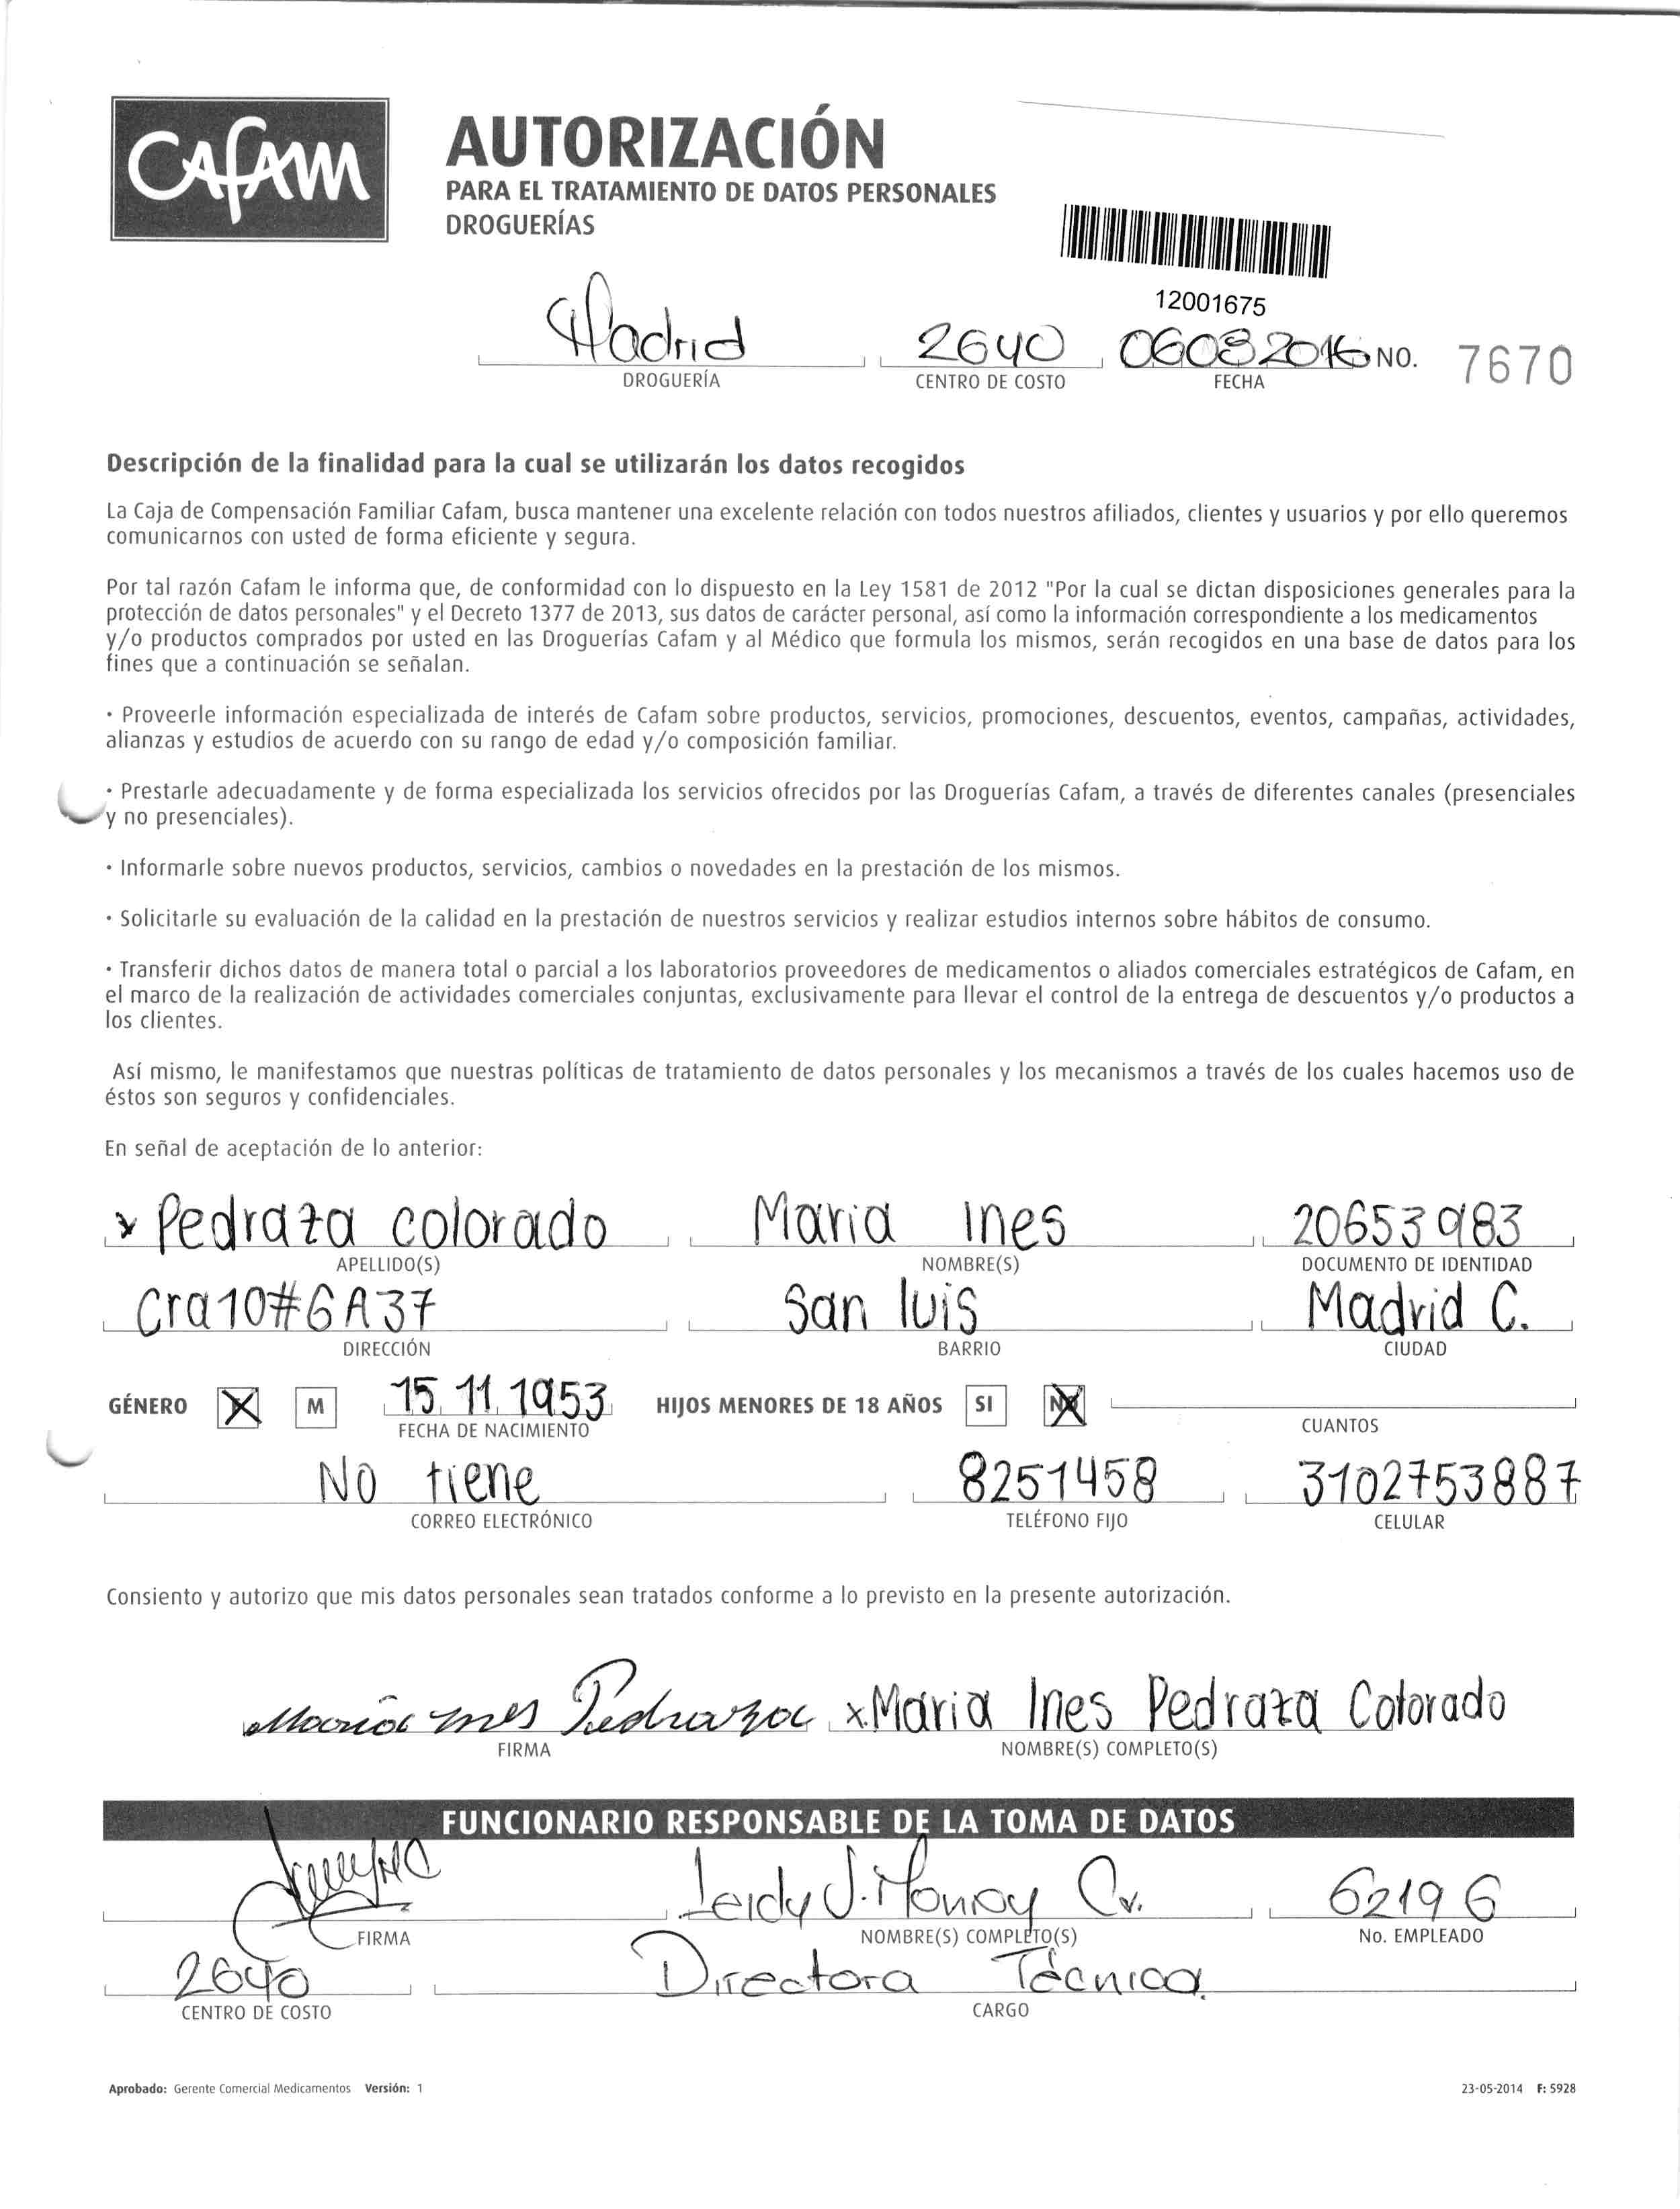 CAFAM
AUTORIZACIÓN
PARA EL TRATAMIENTO DE DATOS PERSONALES
DROGUERÍAS
12001675
Madrid 2640 06082016 NO. 7670
DROGUERÍA CENTRO DE COSTO FECHA
Descripción de la finalidad para la cual se utilizarán los datos recogidos
La Caja de Compensación Familiar Cafam, busca mantener una excelente relación con todos nuestros afiliados, clientes y usuarios y por ello queremos
comunicarnos con usted de forma eficiente y segura.
Por tal razón Cafam le informa que, de conformidad con lo dispuesto en la Ley 1581 de 2012 "Por la cual se dictan disposiciones generales para la
protección de datos personales" y el Decreto 1377 de 2013, sus datos de carácter personal, así como la información correspondiente a los medicamentos
y/o productos comprados por usted en las Droguerías Cafam y al Médico que formula los mismos, serán recogidos en una base de datos para los
fines que a continuación se señalan.
· Proveerle información especializada de interés de Cafam sobre productos, servicios, promociones, descuentos, eventos, campañas, actividades,
alianzas y estudios de acuerdo con su rango de edad y/o composición familiar.
· Prestarle adecuadamente y de forma especializada los servicios ofrecidos por las Droguerías Cafam, a través de diferentes canales (presenciales
y no presenciales).
· Informarle sobre nuevos productos, servicios, cambios o novedades en la prestación de los mismos.
· Solicitarle su evaluación de la calidad en la prestación de nuestros servicios y realizar estudios internos sobre hábitos de consumo.
· Transferir dichos datos de manera total o parcial a los laboratorios proveedores de medicamentos o aliados comerciales estratégicos de Cafam, en
el marco de la realización de actividades comerciales conjuntas, exclusivamente para llevar el control de la entrega de descuentos y/o productos a
los clientes.
Así mismo, le manifestamos que nuestras políticas de tratamiento de datos personales y los mecanismos a través de los cuales hacemos uso de
éstos son seguros y confidenciales.
En señal de aceptación de lo anterior:
x Pedraza colorado Maria Ines 20653983
APELLIDO(S) NOMBRE(S) DOCUMENTO DE IDENTIDAD
cra10#6A37 San luis Madrid C.
DIRECCIÓN BARRIO CIUDAD
GÉNERO X M 15 11 1953 HIJOS MENORES DE 18 AÑOS SI NO X
FECHA DE NACIMIENTO CUANTOS
No tiene 8251458 3102753887
CORREO ELECTRÓNICO TELÉFONO FIJO CELULAR
Consiento y autorizo que mis datos personales sean tratados conforme a lo previsto en la presente autorización.
Maria Ines Pedraza x Maria Ines Pedraza Colorado
FIRMA NOMBRE(S) COMPLETO(S)
FUNCIONARIO RESPONSABLE DE LA TOMA DE DATOS
Leidy J. Monroy Cr. 62196
FIRMA NOMBRE(S) COMPLETO(S) No. EMPLEADO
2640 Directora Técnica
CENTRO DE COSTO CARGO
Aprobado: Gerente Comercial Medicamentos Versión: 1 23-05-2014 F: 5928